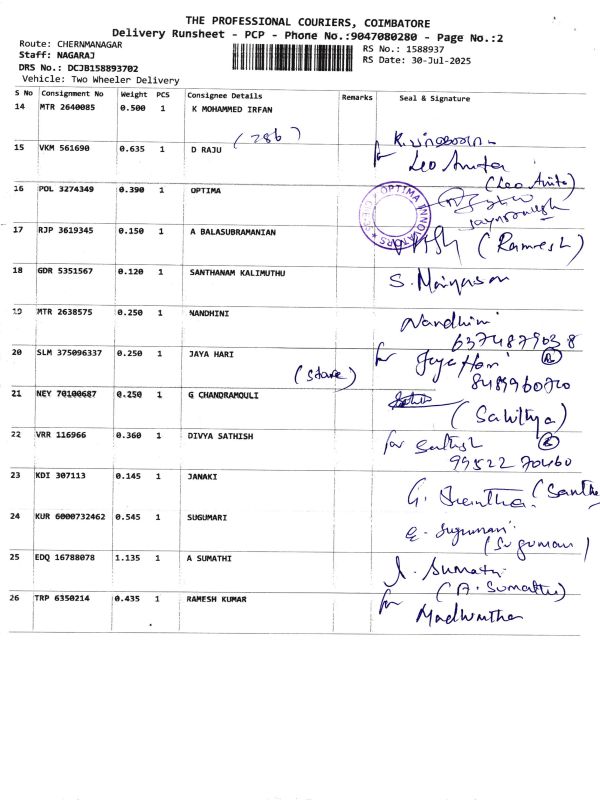 THE PROFESSIONAL COURIERS, COIMBATORE
Delivery Runsheet - PCP - Phone No.:9047080280 - Page No.:2
Route: CHERNMANAGAR
RS No.: 1588937
Staff: NAGARAJ
RS Date: 30-Jul-2025
DRS No.: DCJB158893702
Vehicle: Two Wheeler Delivery
S No Consignment No Weight PCS Consignee Details Remarks Seal & Signature
14 MTR 2640085 0.500 1 K MOHAMMED IRFAN
(286)
15 VKM 561690 0.635 1 D RAJU
for Leo Anita
(Leo Anito)
16 POL 3274349 0.390 1 OPTIMA
OPTIMA INNOVATORS
17 RJP 3619345 0.150 1 A BALASUBRAMANIAN
(Ramesh)
18 GDR 5351567 0.120 1 SANTHANAM KALIMUTHU
S.
19 MTR 2638575 0.250 1 NANDHINI
Nandhini
6374879038
20 SLM 375096337 0.250 1 JAYA HARI
for Jaya Hari
(Store)
8489960720
21 NEY 70100687 0.250 1 G CHANDRAMOULI
(Sahithya)
22 VRR 116966 0.360 1 DIVYA SATHISH
for Sathish
99522 70460
23 KDI 307113 0.145 1 JANAKI
G. Shantha. (Santhe
24 KUR 6000732462 0.545 1 SUGUMARI
Sugumari
(Sugumari)
25 EDQ 16788078 1.135 1 A SUMATHI
A. Sumathi
(A. Sumathi)
26 TRP 6350214 0.435 1 RAMESH KUMAR
for Madhumitha